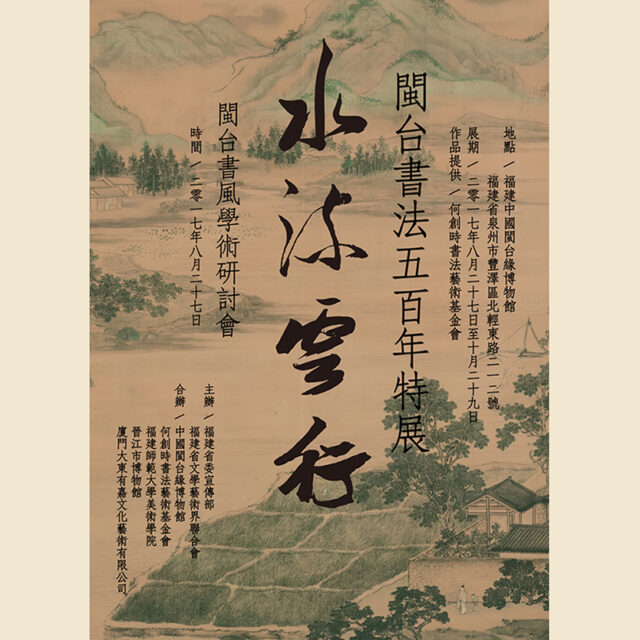 地點／福建中國閩台緣博物館
福建省泉州市豐澤區北輕東路二一二號
展期／二零一七年八月二十七日至十月二十九日
作品提供／何創時書法藝術基金會
閩台書法五百年特展
水流雲行
閩台書風學術研討會
時間／二零一七年八月二十七日
主辦／福建省委宣傳部
福建省文學藝術界聯合會
合辦／中國閩台緣博物館
何創時書法藝術基金會
福建師範大學美術學院
晉江市博物館
廈門大東有嘉文化藝術有限公司